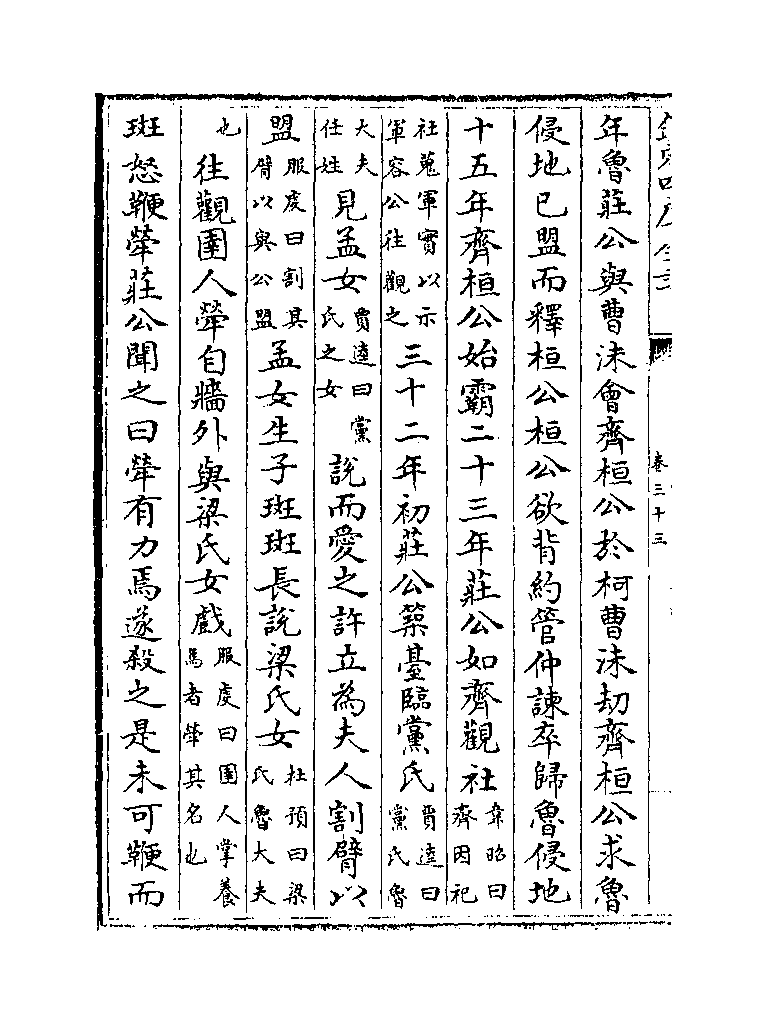 欽定四庫全書
卷三十三
年魯莊公與曹沬會齊桓公於柯曹沬劫齊桓公求魯
侵地已盟而釋桓公桓公欲背約管仲諫卒歸魯侵地
十五年齊桓公始霸二十三年莊公如齊觀社韋昭曰齊因祀
社蒐軍實以示軍容公往觀之三十二年初莊公築臺臨黨氏賈逵曰黨氏魯
大夫任姓見孟女賈逵曰黨氏之女說而愛之許立為夫人割臂以
盟服虔曰割其臂以與公盟孟女生子斑斑長說梁氏女杜預曰梁氏魯大夫
也往觀圉人犖自牆外與梁氏女戲服虔曰圉人掌養馬者犖其名也
斑怒鞭犖莊公聞之曰犖有力焉遂殺之是未可鞭而